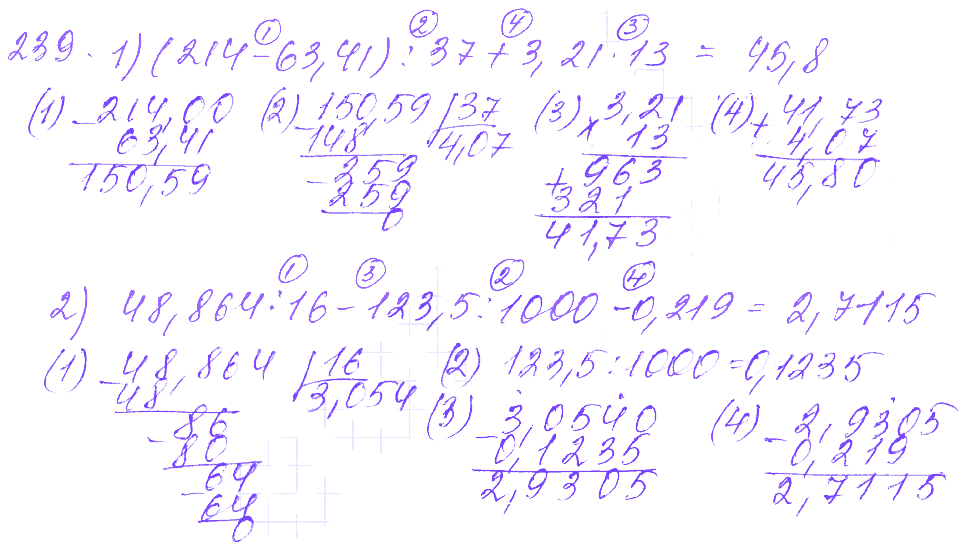 ① ② ④ ③
239. 1) (214-63,41):37+3,21·13 = 45,8
(1) -214,00 (2) 150,59 | 37 (3) 3,21 (4) 41,73
63,41 -148 4,07 × 13 + 4,07
150,59 -259 963 45,80
259 + 321
0 41,73
① ③ ② ④
2) 48,864:16-123,5:1000-0,219 = 2,7115
(1) -48,864 | 16 (2) 123,5:1000=0,1235
48 3,054 (3) -3,0540 (4) -2,9305
86 0,1235 0,219
-80 2,9305 2,7115
64
-64
0